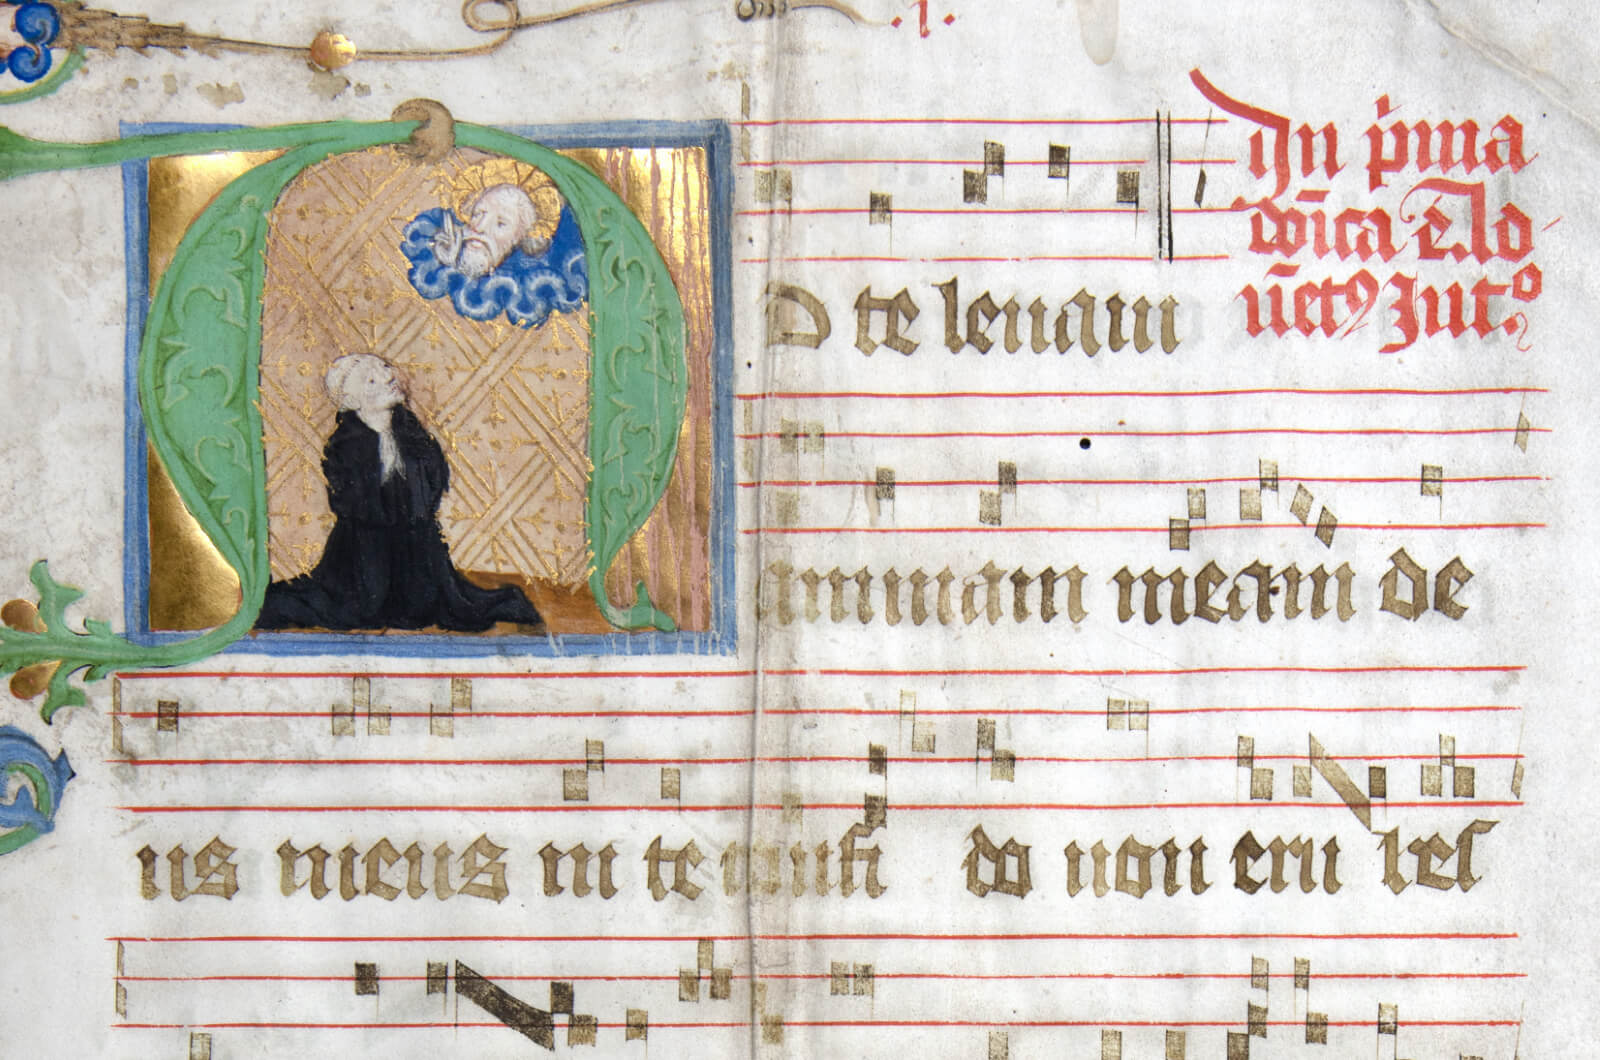 .I.
In p̄ma
dn̄ica ē lo
AD te leuaui
animam meam de
us meus in te confi
do non eru bes